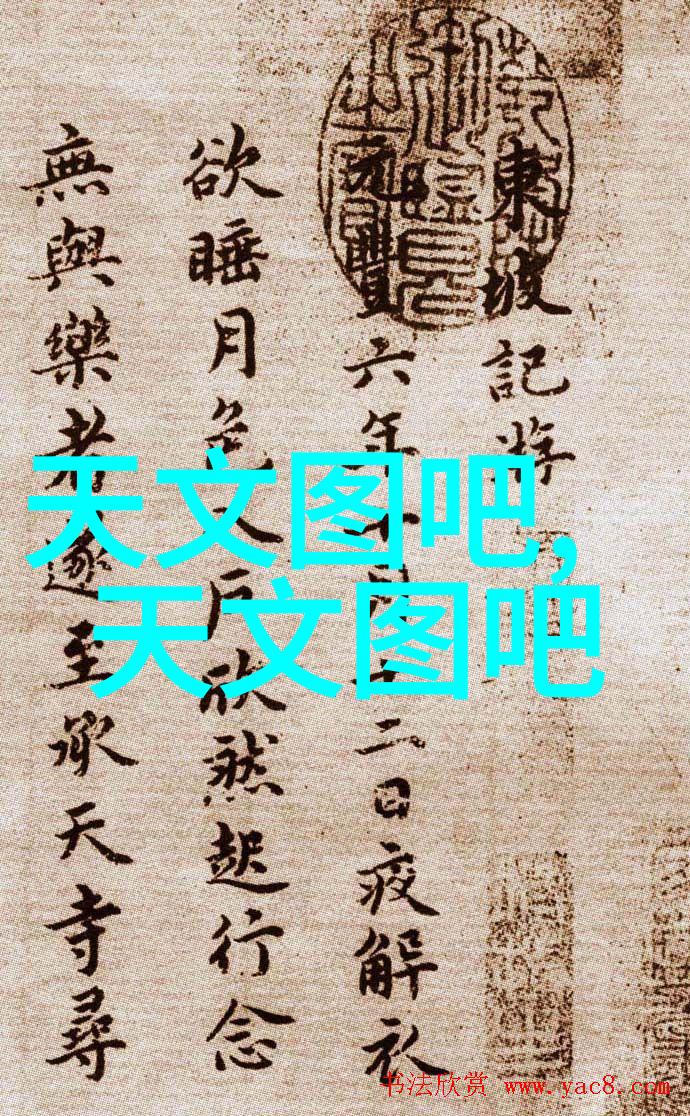 東坡記游
元豐六年十月十二日夜解衣
欲睡月色入户欣然起行念
無與樂者遂至承天寺尋
天文图吧,
天文图吧
书法欣赏 www.yac8.com